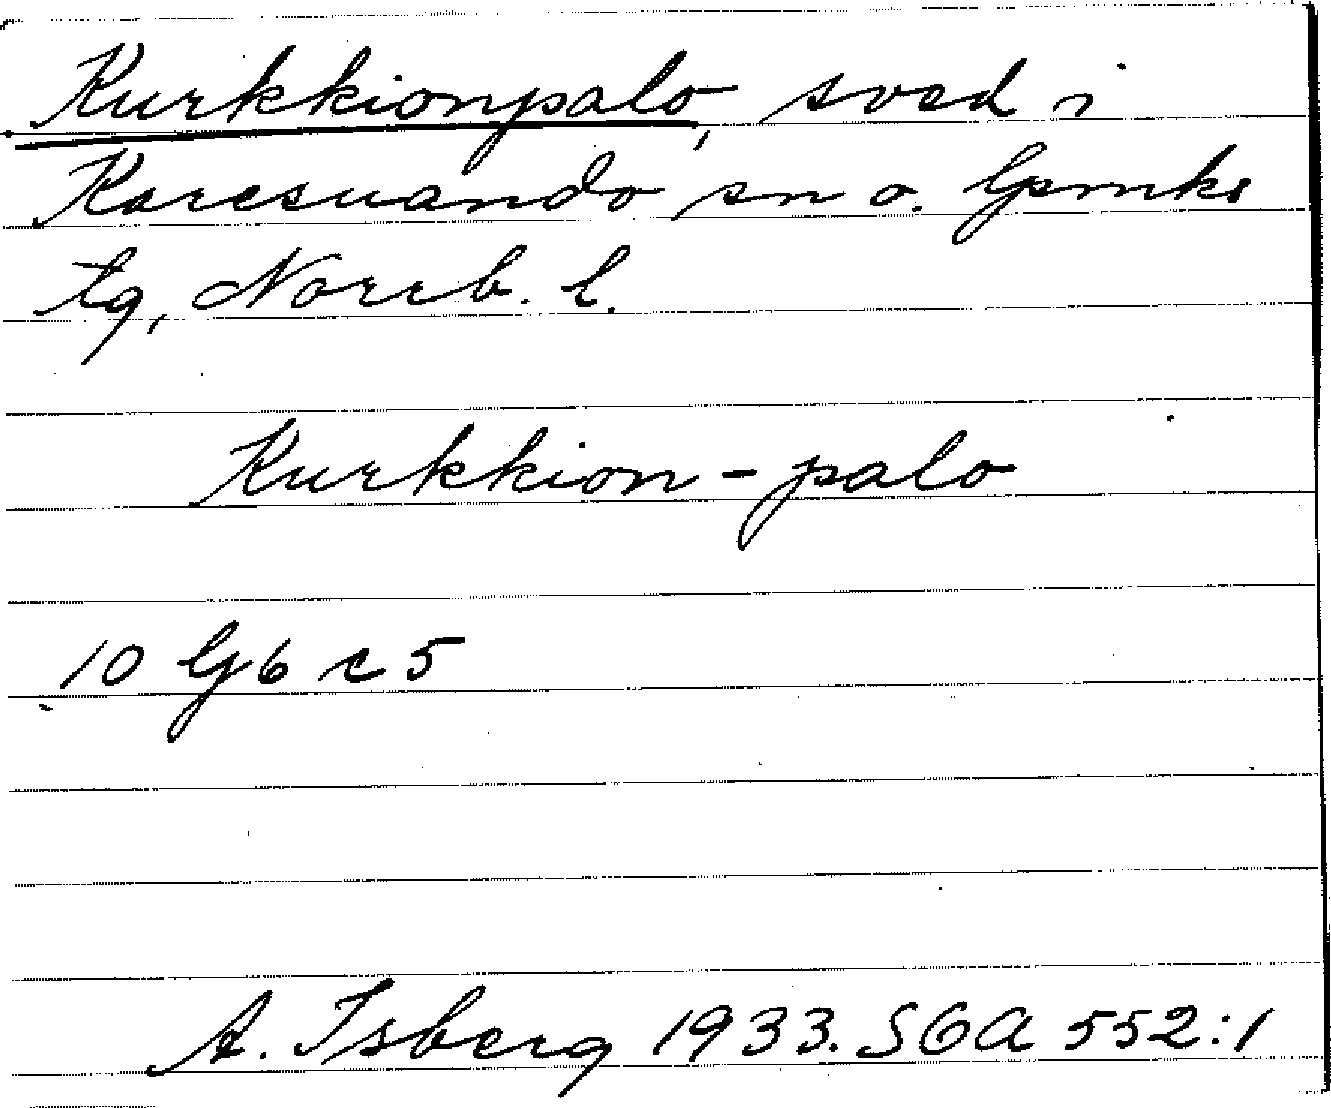 Kurkkionpalo, sved i
Karesuando sn o. Gpmks
tg, Norrb. l.
Kurkkion-palo
10 G6 c 5
A. Isberg 1933. SOA 552:1